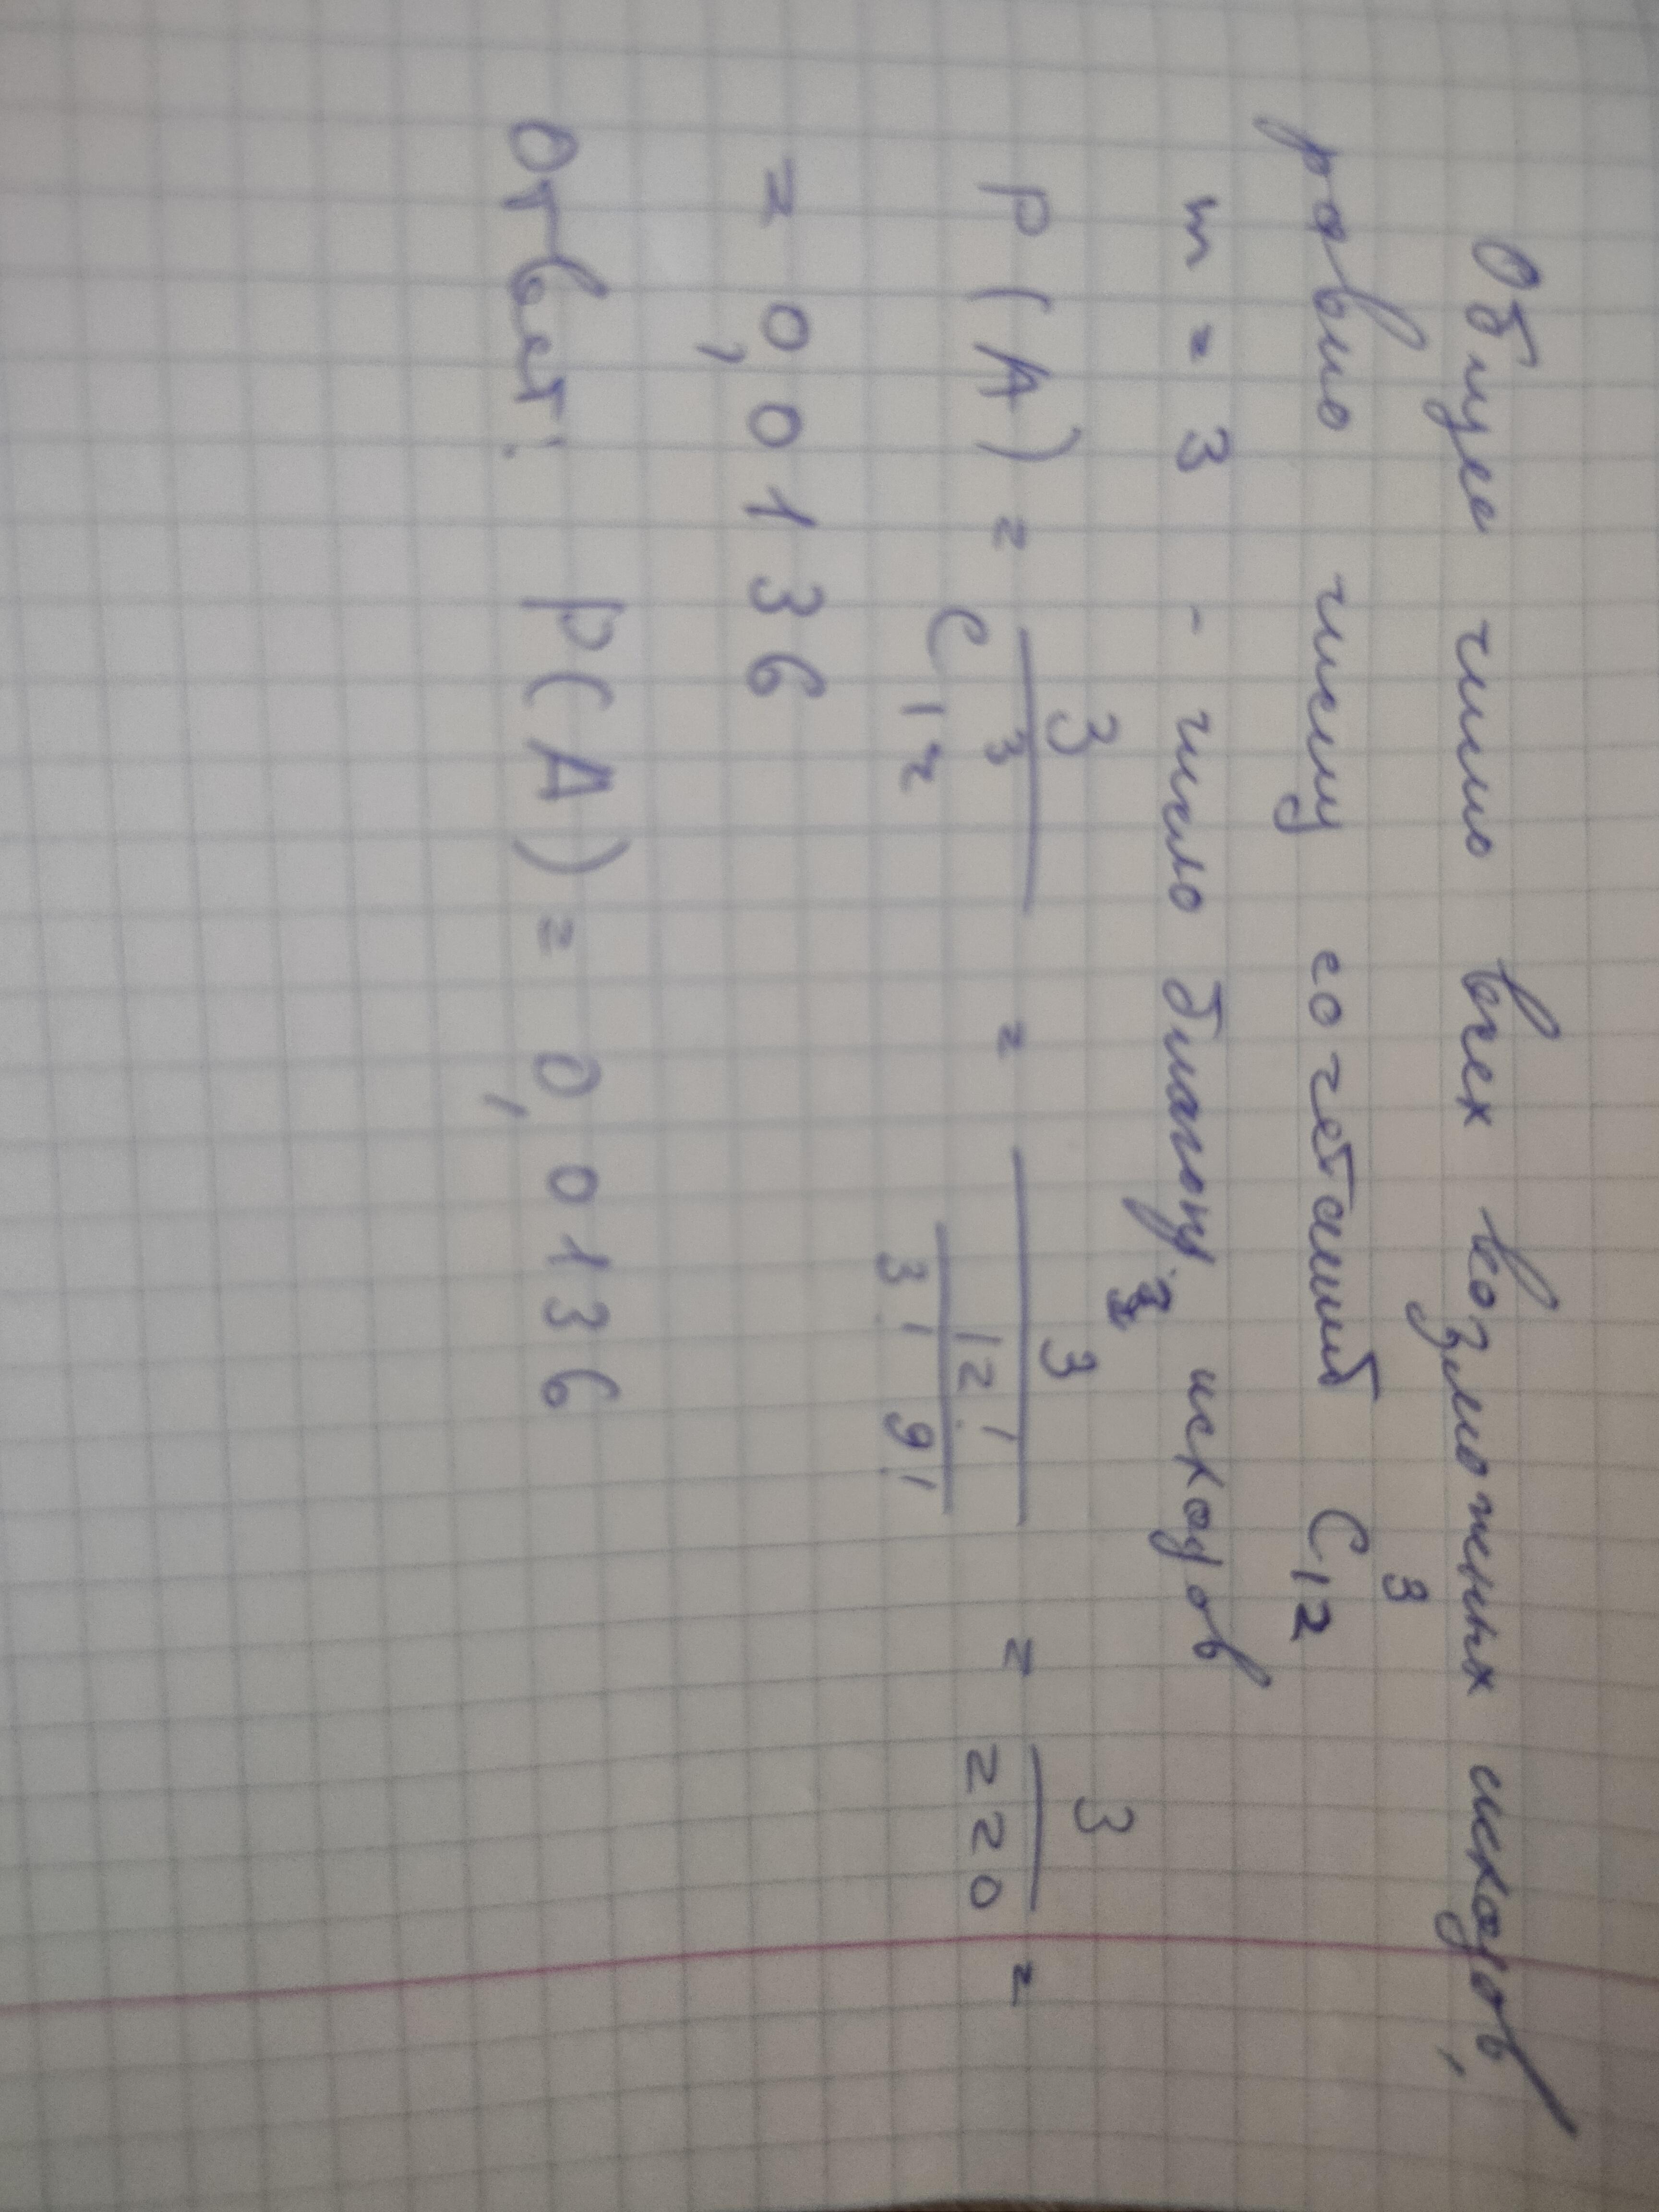 Общее число всех возможных исходов,
равно числу сочетаний C₁₂³
m = 3 - число благопр. исходов
P(A) = 3/C₁₂³ = 3/(12!/(3!9!)) = 3/220 =
= 0,0136
Ответ: P(A) = 0,0136